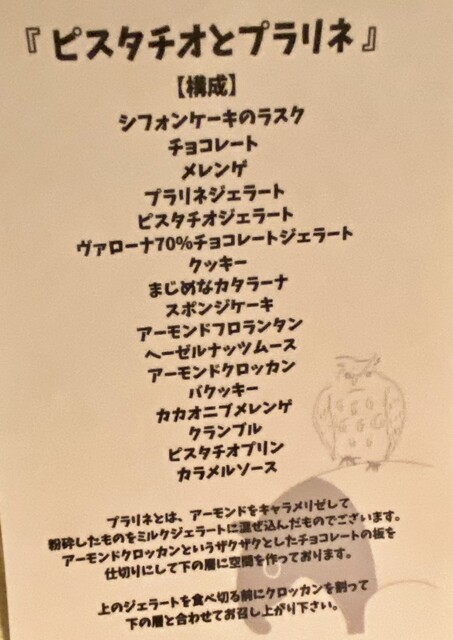 『 ピスタチオとプラリネ 』
【構成】
シフォンケーキのラスク
チョコレート
メレンゲ
プラリネジェラート
ピスタチオジェラート
ヴァローナ70%チョコレートジェラート
クッキー
まじめなカタラーナ
スポンジケーキ
アーモンドフロランタン
ヘーゼルナッツムース
アーモンドクロッカン
バクッキー
カカオニブメレンゲ
クランブル
ピスタチオプリン
カラメルソース
プラリネとは、アーモンドをキャラメリゼして
粉砕したものをミルクジェラートに混ぜ込んだものでございます。
アーモンドクロッカンというザクザクとしたチョコレートの板を
仕切りにして下の層に空間を作っております。
上のジェラートを食べ切る前にクロッカンを割って
下の層と合わせてお召し上がり下さい。